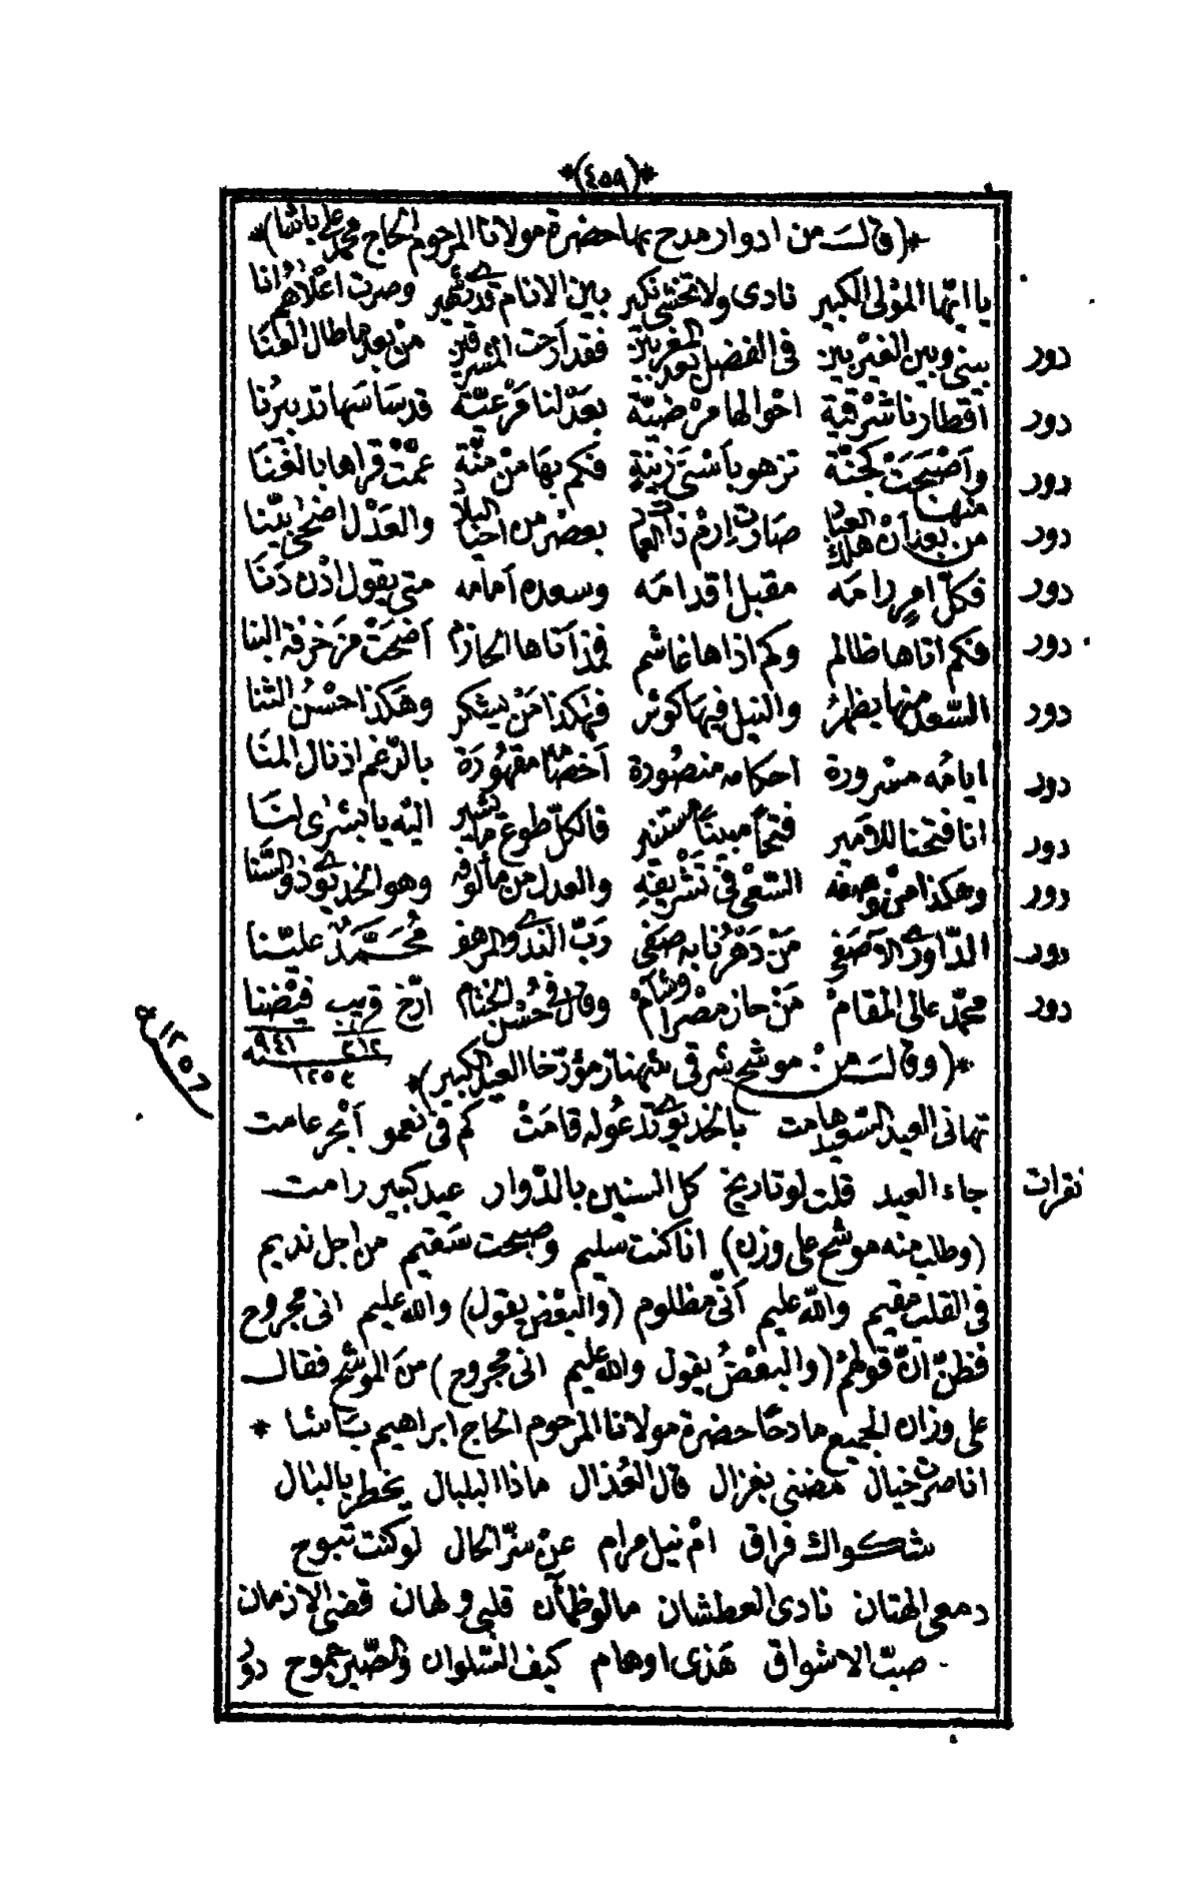 *(٤٥٨)*
*(قال من ادوار مدح بها حضرة مولانا المرحوم الحاج محمد علي باشا)*
يا ايّها المولى الكبير نادى ولا تخشى نكير بين الانام قد شهير وصرت اعلاهم انا
دور بيني وبين الغيربين في الفضل بعد المغربين فقد أرحت المشرقين من بعدها طال العنَا
دور اقطارنا شرْقية احوالها مرْضيّة بعَدْلنا مَرْعيّة قد سَاسَها تدبيرُنا
دور وأصْبَحَتْ كجَنّة تزهو بأسْنَى زينةٍ فكم بهَا منْ منّة عمّتْ قراها بالغنَا
دور من بعد أن هلك منها العباد صارت إرمْ ذات العماد بعضْ من احيَا البلاد والعَدْل اضحى بيّنا
دور فكلّ امرٍ رامَه مقبل اقدامَه وسعده أمامه متى يقول اذن دَنَا
دور فكم اتاها ظالم وكم اذاها غاشم فمذ أتاها الحازم أضحَتْ مزَخرفة البنا
دور السّعد منها يظهرُ والنيل فيهَا كوثر فهٰكذا مَنْ يشكر وهَكذا حُسْن الثنا
دور ايامُه مسْرورة احكامه منصُورة أخصَامُه مقهُورَة بالرّغم اذ نال المنَا
دور انا فتحنا للأمير فتحاً مبيناً مستنير فالكلّ طوع ما يشير اليْه يا بُشرٰى لنَا
دور وهكذا منْ وصفه السّعْي في تشْريفهِ والعدل من مألوفه وهو الخديوي ذو السَّنا
دور الدّاوري الآصَفى مَنْ دَهْرُنا به صَفى رَبّ الندى والمرهف مُحَمَّدٌ عليّنا
دور محمّد عالي المقامْ مَنْ حاز مصْراً وشامْ وقال في حُسْن الختام ارّخ قريب فيْضنا
٣١٢ ٩٤١
١٢٥٣ سنه
*(وقال من: موشح شرقي شهناز مؤرّخا العيد الكبير)*
١٢٥٦
تهاني العيد السّعيد هامت بالخديوي تدعُوله قامَتْ كم في نعمو أبْحر عامت
نقرات جاء العيد قلت لو تاريخ كل السنين بالدّوار عيد كبير رامت
(وطلب منه موشح على وزن) انا كنت سليم وصبحت سَقيم من اجل نديم
في القلب مقيم واللّه عليم أنّي مظلوم (والبعْض يقول) والله عليم انى مجروح
فظنّ انّ قولهمْ (والبعْضُ يقول والله عليم انى مجروح) منَ الموشح فقال
على وزان الجميع مادحًا حضرة مولانا المرحوم الحاج ابراهيم بَاشا *
انا صرت خيال مضنى بغزال قال العُذال ماذا البلبال يخطر بالبال
شكواك فراق امْ نيل مرام عنْ سرّ الحال لو كنت تبوح
دمعي الهتان نادى العطشان مالو ظمآن قلبي ولهان قضى الازمان
صبّ الاشواق هَذى اوهام كيف السّلوان والصّبر جموح دوُر